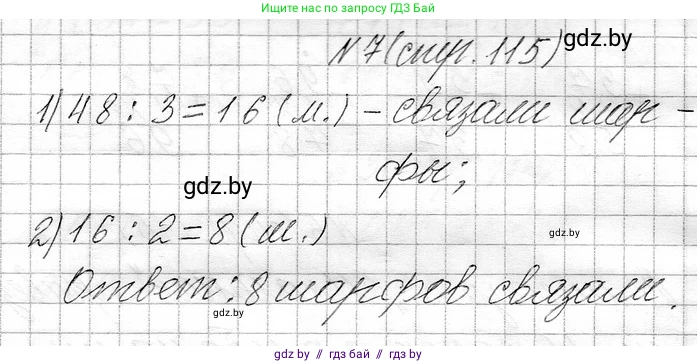 Ищите нас по запросу ГДЗ Бай
N 7 (стр. 115) gdz.by
1) 48 : 3 = 16 (м.) - связали шар-
фы;
gdz.by
2) 16 : 2 = 8 (ш.)
gdz.by
Ответ: 8 шарфов связали.
gdz.by
gdz.by // гдз бай // гдз by